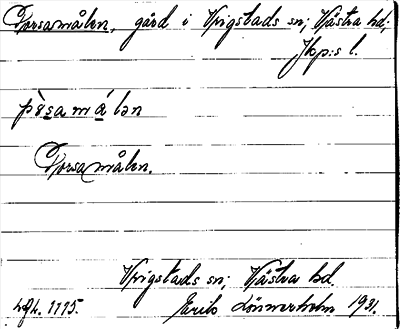 Porsamålen, gård i Vrigstads sn; Västra hd;
Jkp:s l.
pòsa málən
Porsamålen.
Vrigstads sn; Västra hd.
1175. Erik Lönnerholm 1931.